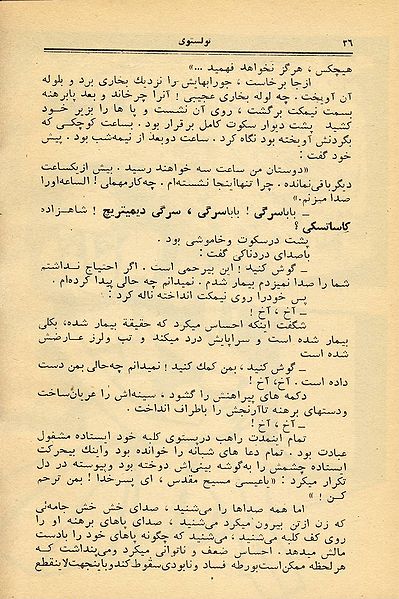 ۳۶ تولستوی
هیچکس ، هرگز نخواهد فهمید ...»
ازجا برخاست ، جورابهایش را نزدیك بخاری برد و بلوله
آن آویخت . چه لوله بخاری عجیبی ! آنرا چرخاند و بعد پابرهنه
بسمت نیمکت برگشت ، روی آن نشست و پا ها را بزیر خود
کشید . پشت دیوار سکوت کامل برقرار بود . بساعت کوچکی که
بگردنش آویخته بود نگاه کرد . ساعت دوبعد از نیمه‌شب بود . پیش
خود گفت :
«دوستان من ساعت سه خواهند رسید . بیش ازیکساعت
دیگرباقی‌نمانده . چرا تنهااینجا نشسته‌ام . چه‌کارمهملی ! الساعه‌اورا
صدا میزنم.»
ــ باباسرگی ! باباسرگی ، سرگی دیمیتریچ ! شاهزاده
کاساتسکی ؟
پشت درسکوت وخاموشی بود .
باصدای دردناکی گفت :
ــ گوش کنید ! این بیرحمی است . اگر احتیاج نداشتم
شما را صدا نمیزدم بیمار شدم . نمیدانم چه حالی پیدا کرده‌ام .
پس خودرا روی نیمکت انداخته ناله کرد :
ــ آخ ، آخ !
شگفت اینکه احساس میکرد که حقیقة بیمار شده، بکلی
بیمار شده است و سراپایش درد میکند و تب ولرز عارضش
شده است
ــ گوش کنید ، بمن کمك کنید ! نمیدانم چه‌حالی بمن دست
داده است . آخ، آخ !
دکمه های پیراهنش را گشود ، سینه‌اش را عریان‌ساخت
ودستهای برهنه تاآرنجش را باطراف انداخت .
ــ آخ ، آخ !
تمام اینمدت راهب درپستوی کلبه خود ایستاده مشغول
عبادت بود . تمام دعا های شبانه را خوانده بود واینك بیحرکت
ایستاده چشمش را به‌گوشه بینی‌اش دوخته بود وپیوسته در دل
تکرار میکرد : «یاعیسی مسیح مقدس ، ای پسرخدا ! بمن ترحم
کن ! »
اما همه صداها را می‌شنید ، صدای خش خش جامه‌ئی
که زن ازتن بیرون‌میکرد می‌شنید ، صدای پاهای برهنه او را
روی کف کلبه می‌شنید ، می‌شنید که چگونه پاهای خود را بادست
مالش میدهد . احساس ضعف و ناتوانی میکرد ومی‌پنداشت که
هرلحظه ممکن‌است بورطه فساد ونابودی‌سقوط کند وباینجهت‌لاینقطع